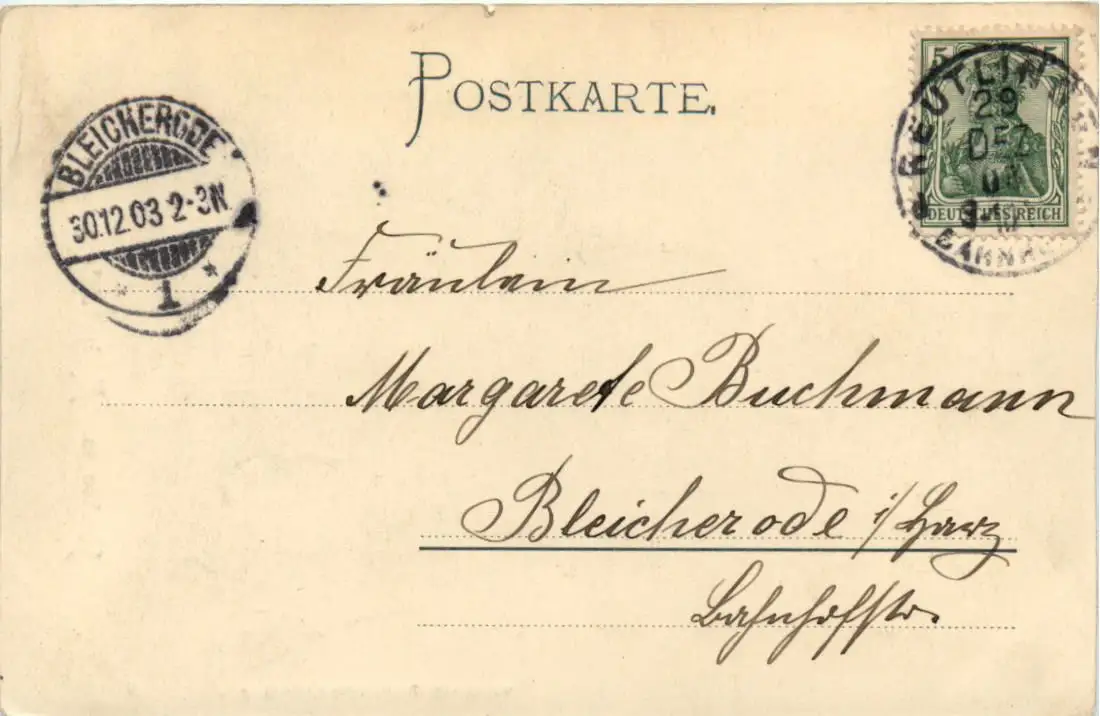 POSTKARTE.
5 5
DEUTSCHES REICH
REUTLINGEN
29
DEZ
03
BAHNHOF
BLEICHERODE
30.12.03 2-3N.
* 1 *
Fräulein
Margarete Buchmann
Bleicherode i/Harz
Bahnhofstr.